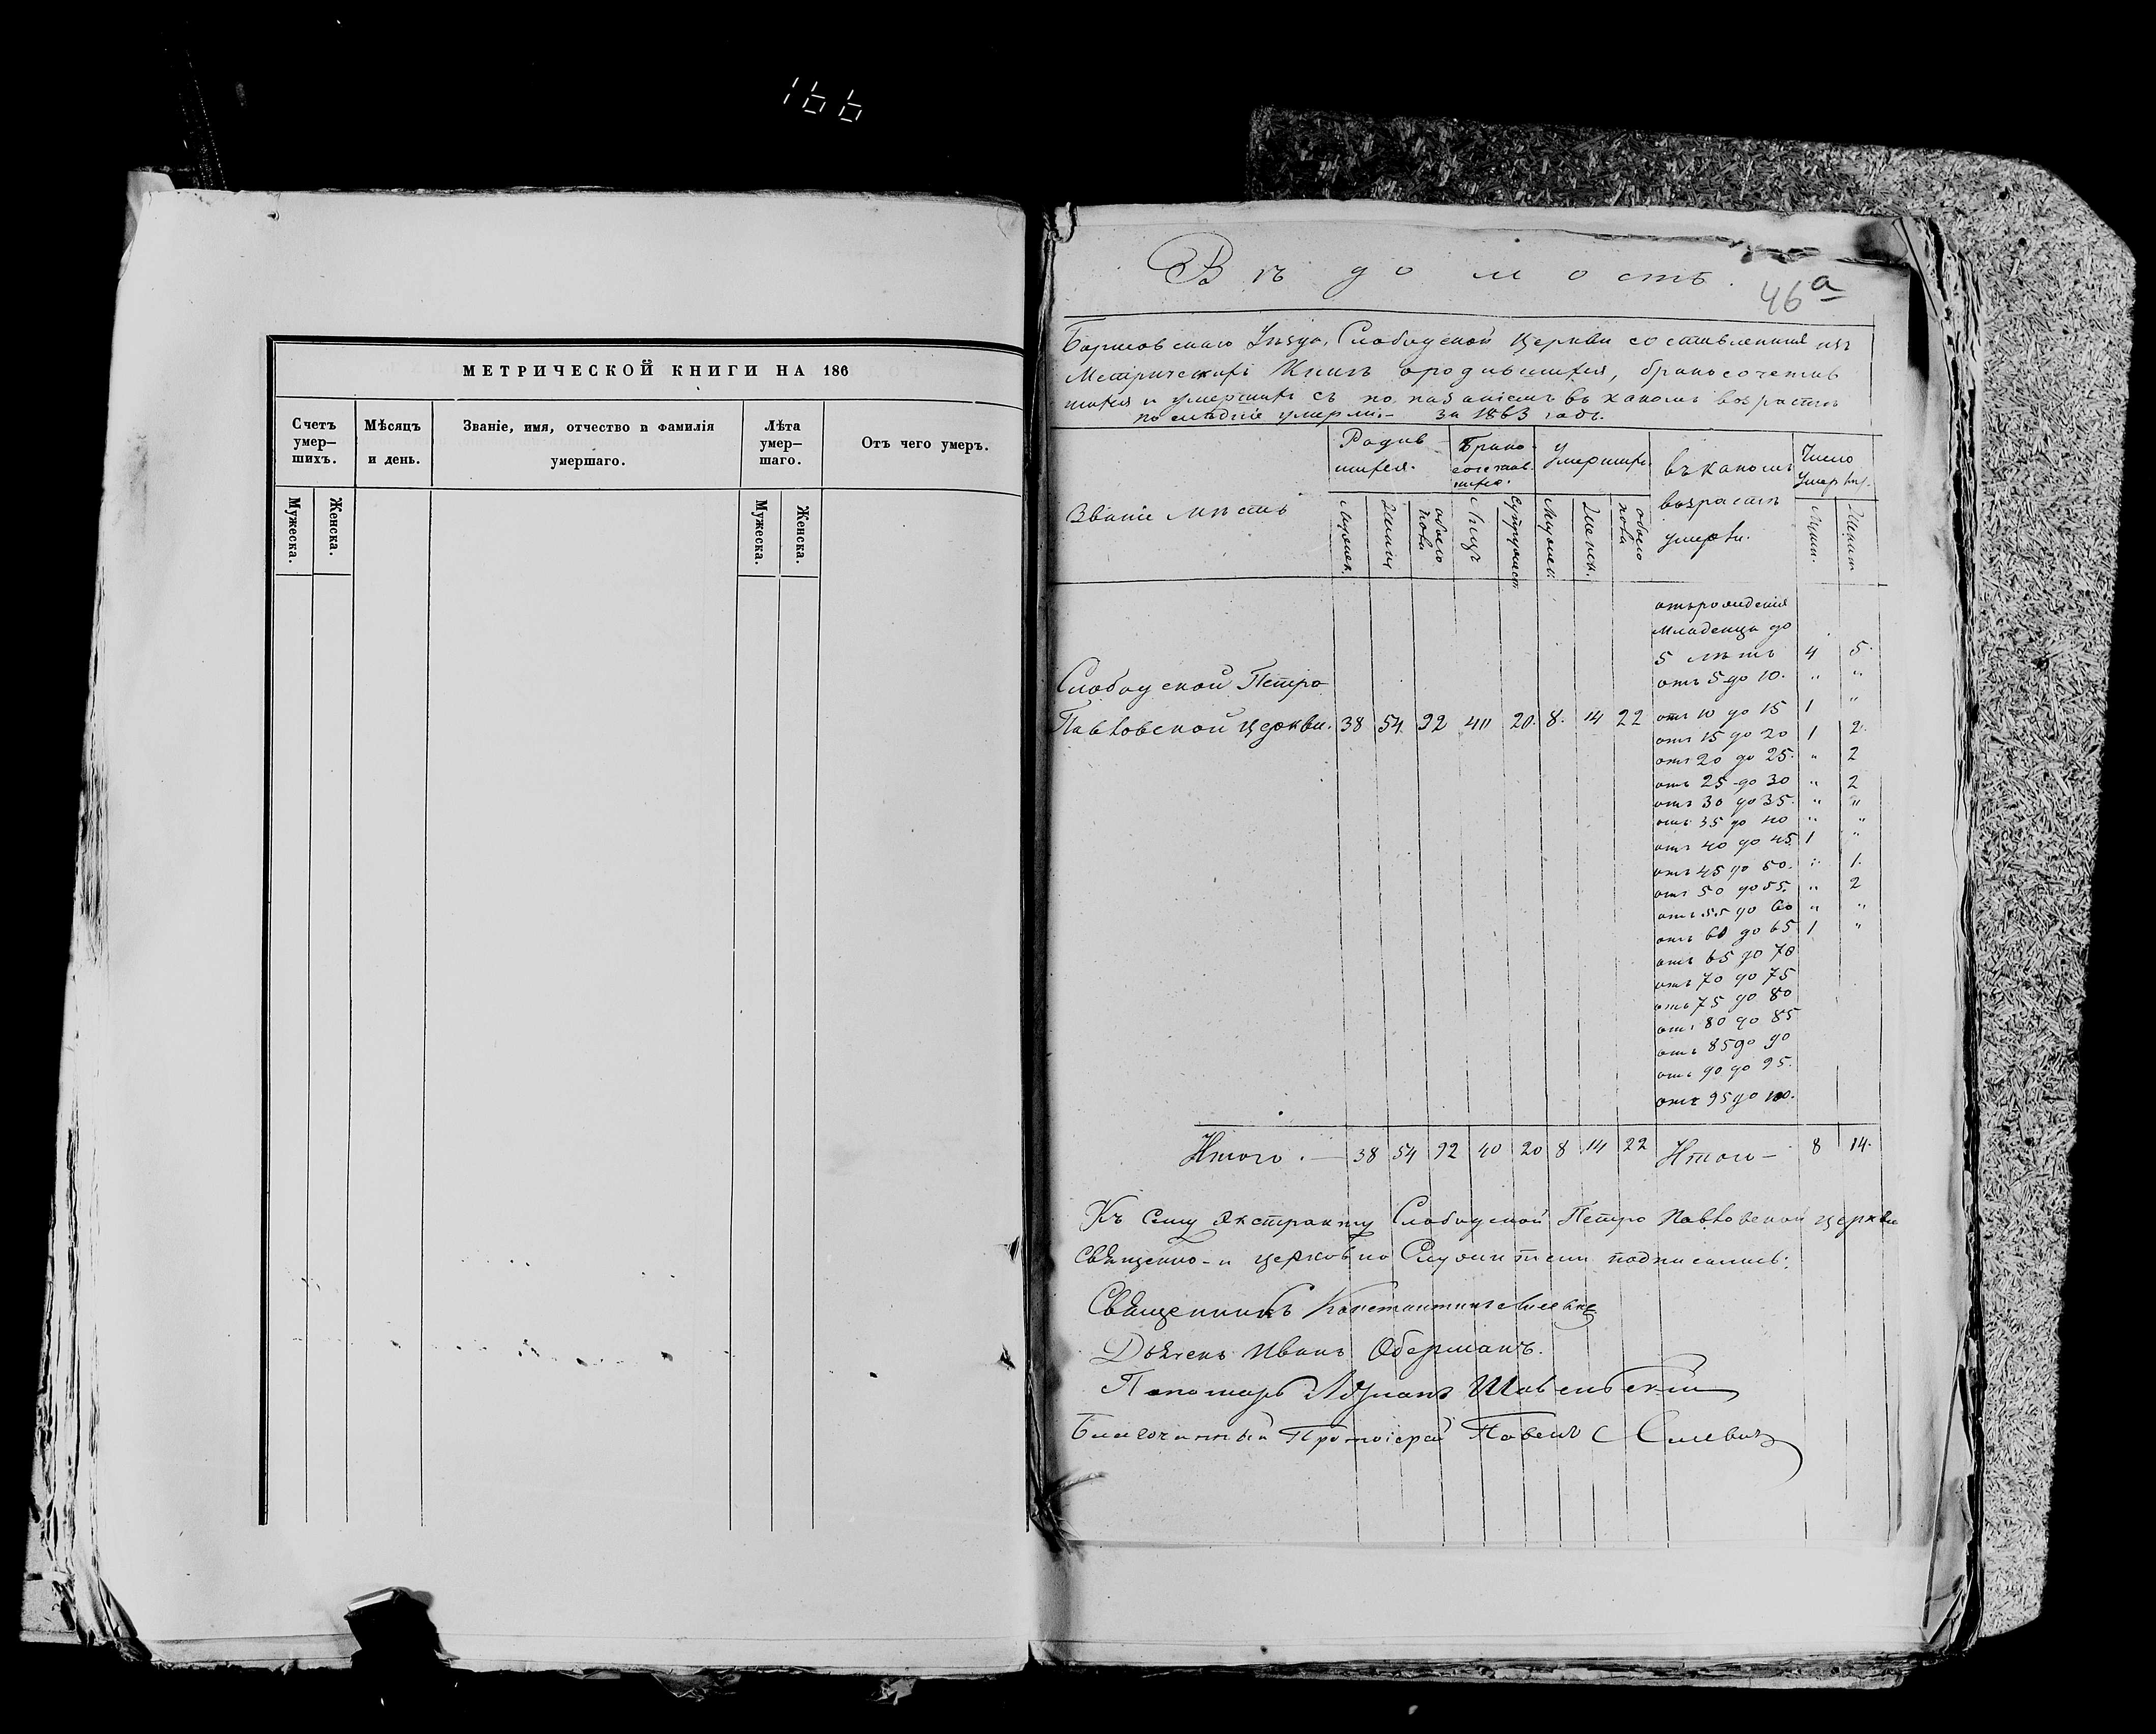 166
МЕТРИЧЕСКОЙ КНИГИ НА 186
Счетъ умер— шихъ.
Мѣсяцъ и день.
Званіе, имя, отчество и фамилія умершаго.
Лѣта умер— шаго.
Отъ чего умеръ.
Мужеска.
Женска.
Мужеска.
Женска.
Вѣдомость.
46а
Борисовскаго Уѣзда, Слободской Церкви составленная изъ
Метрическихъ Книгъ о родившихся, бракосочетав
шихся и умершихъ съ показаніемъ въ какомъ возрастѣ
послѣдніе умерли. — за 1863 годъ.
Званіе мѣстъ
Родив шихся.
Брако сочетав. шихся.
Умершихъ.
въ какомъ возрастѣ умерли.
Число умерших.
Мужеск.
Женска
обоего пола
Лицъ
Супружест.
Мужеск.
Женск.
обоего пола
Мужс.
Женск.
отърожденія
Младенца до
5 лѣтъ 4 5.
отъ 5 до 10. " "
Слободской Петро
Павловской Церкви. 38 54. 92 40 20. 8. 14 22 отъ 10 до 15 1 "
отъ 15 до 20 1 2.
отъ 20 до 25. " 2
отъ 25 до 30 " 2
отъ 30 до 35. " "
отъ 35 до 40 " "
отъ 40 до 45. 1 "
отъ 45 до 50. " 1.
отъ 50 до 55. " 2
отъ 55 до 60 " "
отъ 60 до 65 1 "
отъ 65 до 70
отъ 70 до 75
отъ 75 до 80
отъ 80 до 85
отъ 85 до 90
отъ 90 до 95.
отъ 95 до 100.
Итого. — 38 54 92 40 20 8 14 22 Итого — 8 14.
Къ сему Экстракту Слободской Петро Павловской церкви
Священно- и церковно Служители подписались:
Священникъ Константинъ
Дьячекъ Иванъ Оберманъ.
Пономарь Адріанъ
Благочинный Протоіерей Павелъ